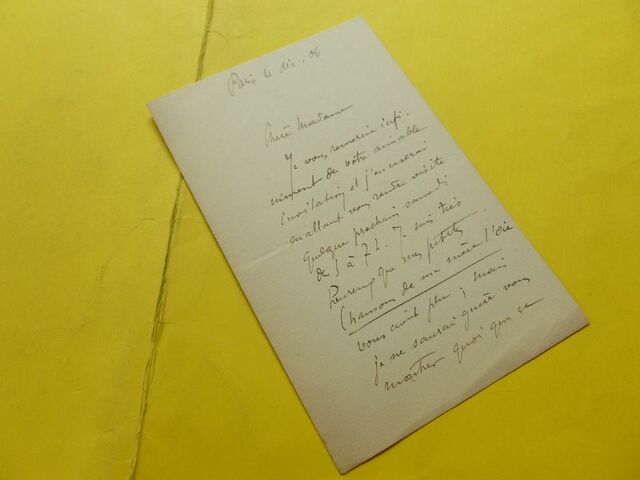 Paris 4 déc. 06
Chère Madame
Je vous remercie infi-
niment de votre aimable
invitation et j'en userai
en allant vous rendre visite
quelque prochain samedi
de 5 à 7h. Je suis très
heureux que mes petites
Chansons de ma mère l'Oie
vous aient plu ; mais
je ne saurai guère vous
montrer quoi que ce